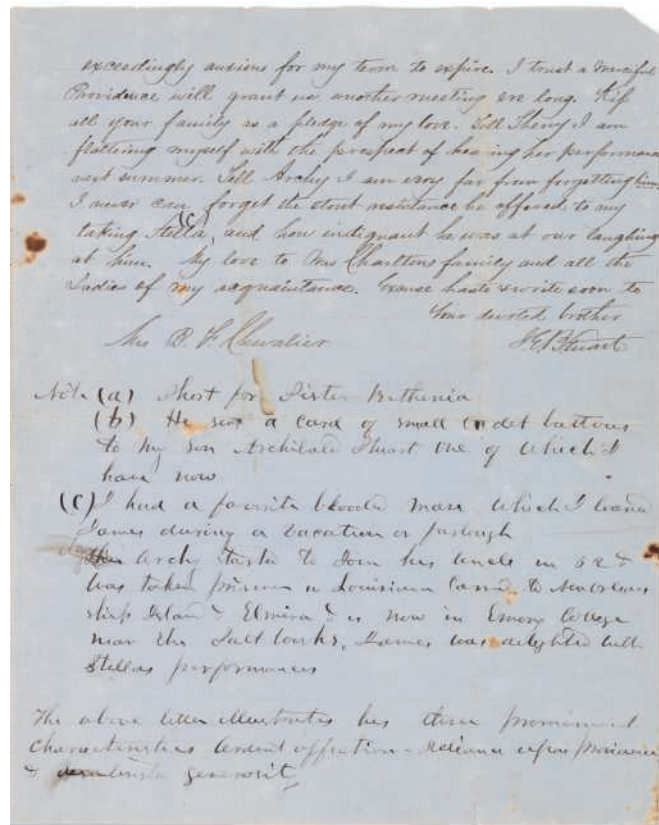 exceedingly anxious for my term to expire. I trust a merciful
Providence will grant us another meeting ere long. Kiss
all your family as a pledge of my love. Tell Theny I am
flattering myself with the prospect of hearing her performance
next summer. Tell Archy I am very far from forgetting him
I never can forget the stout resistance he offered to my
(c)
taking Stella, and how indignant he was at our laughing
at him. My love to Mrs Charltons family and all the
Ladies of my acquaintance. Excuse haste & write soon to
Your devoted brother
Mrs B. F. Chevalier J.E.B Stuart
Note (a) Short for Sister Bethenia
(b) He sent a card of small Cadet buttons
to my son Archibald Stuart one of which I
have now
(c) I had a favorite blooded mare which I loaned
James during a vacation or furlough
Archy started to Join his uncle in 62 &
was taken prisoner in Louisiana carried to New Orleans
ship Island & Elmira & is now in Emory College
near the Salt works, James was delighted with
Stellas performances
The above letter illustrates his three prominent
characteristics Ardent affection - Reliance upon Providence
& generosity